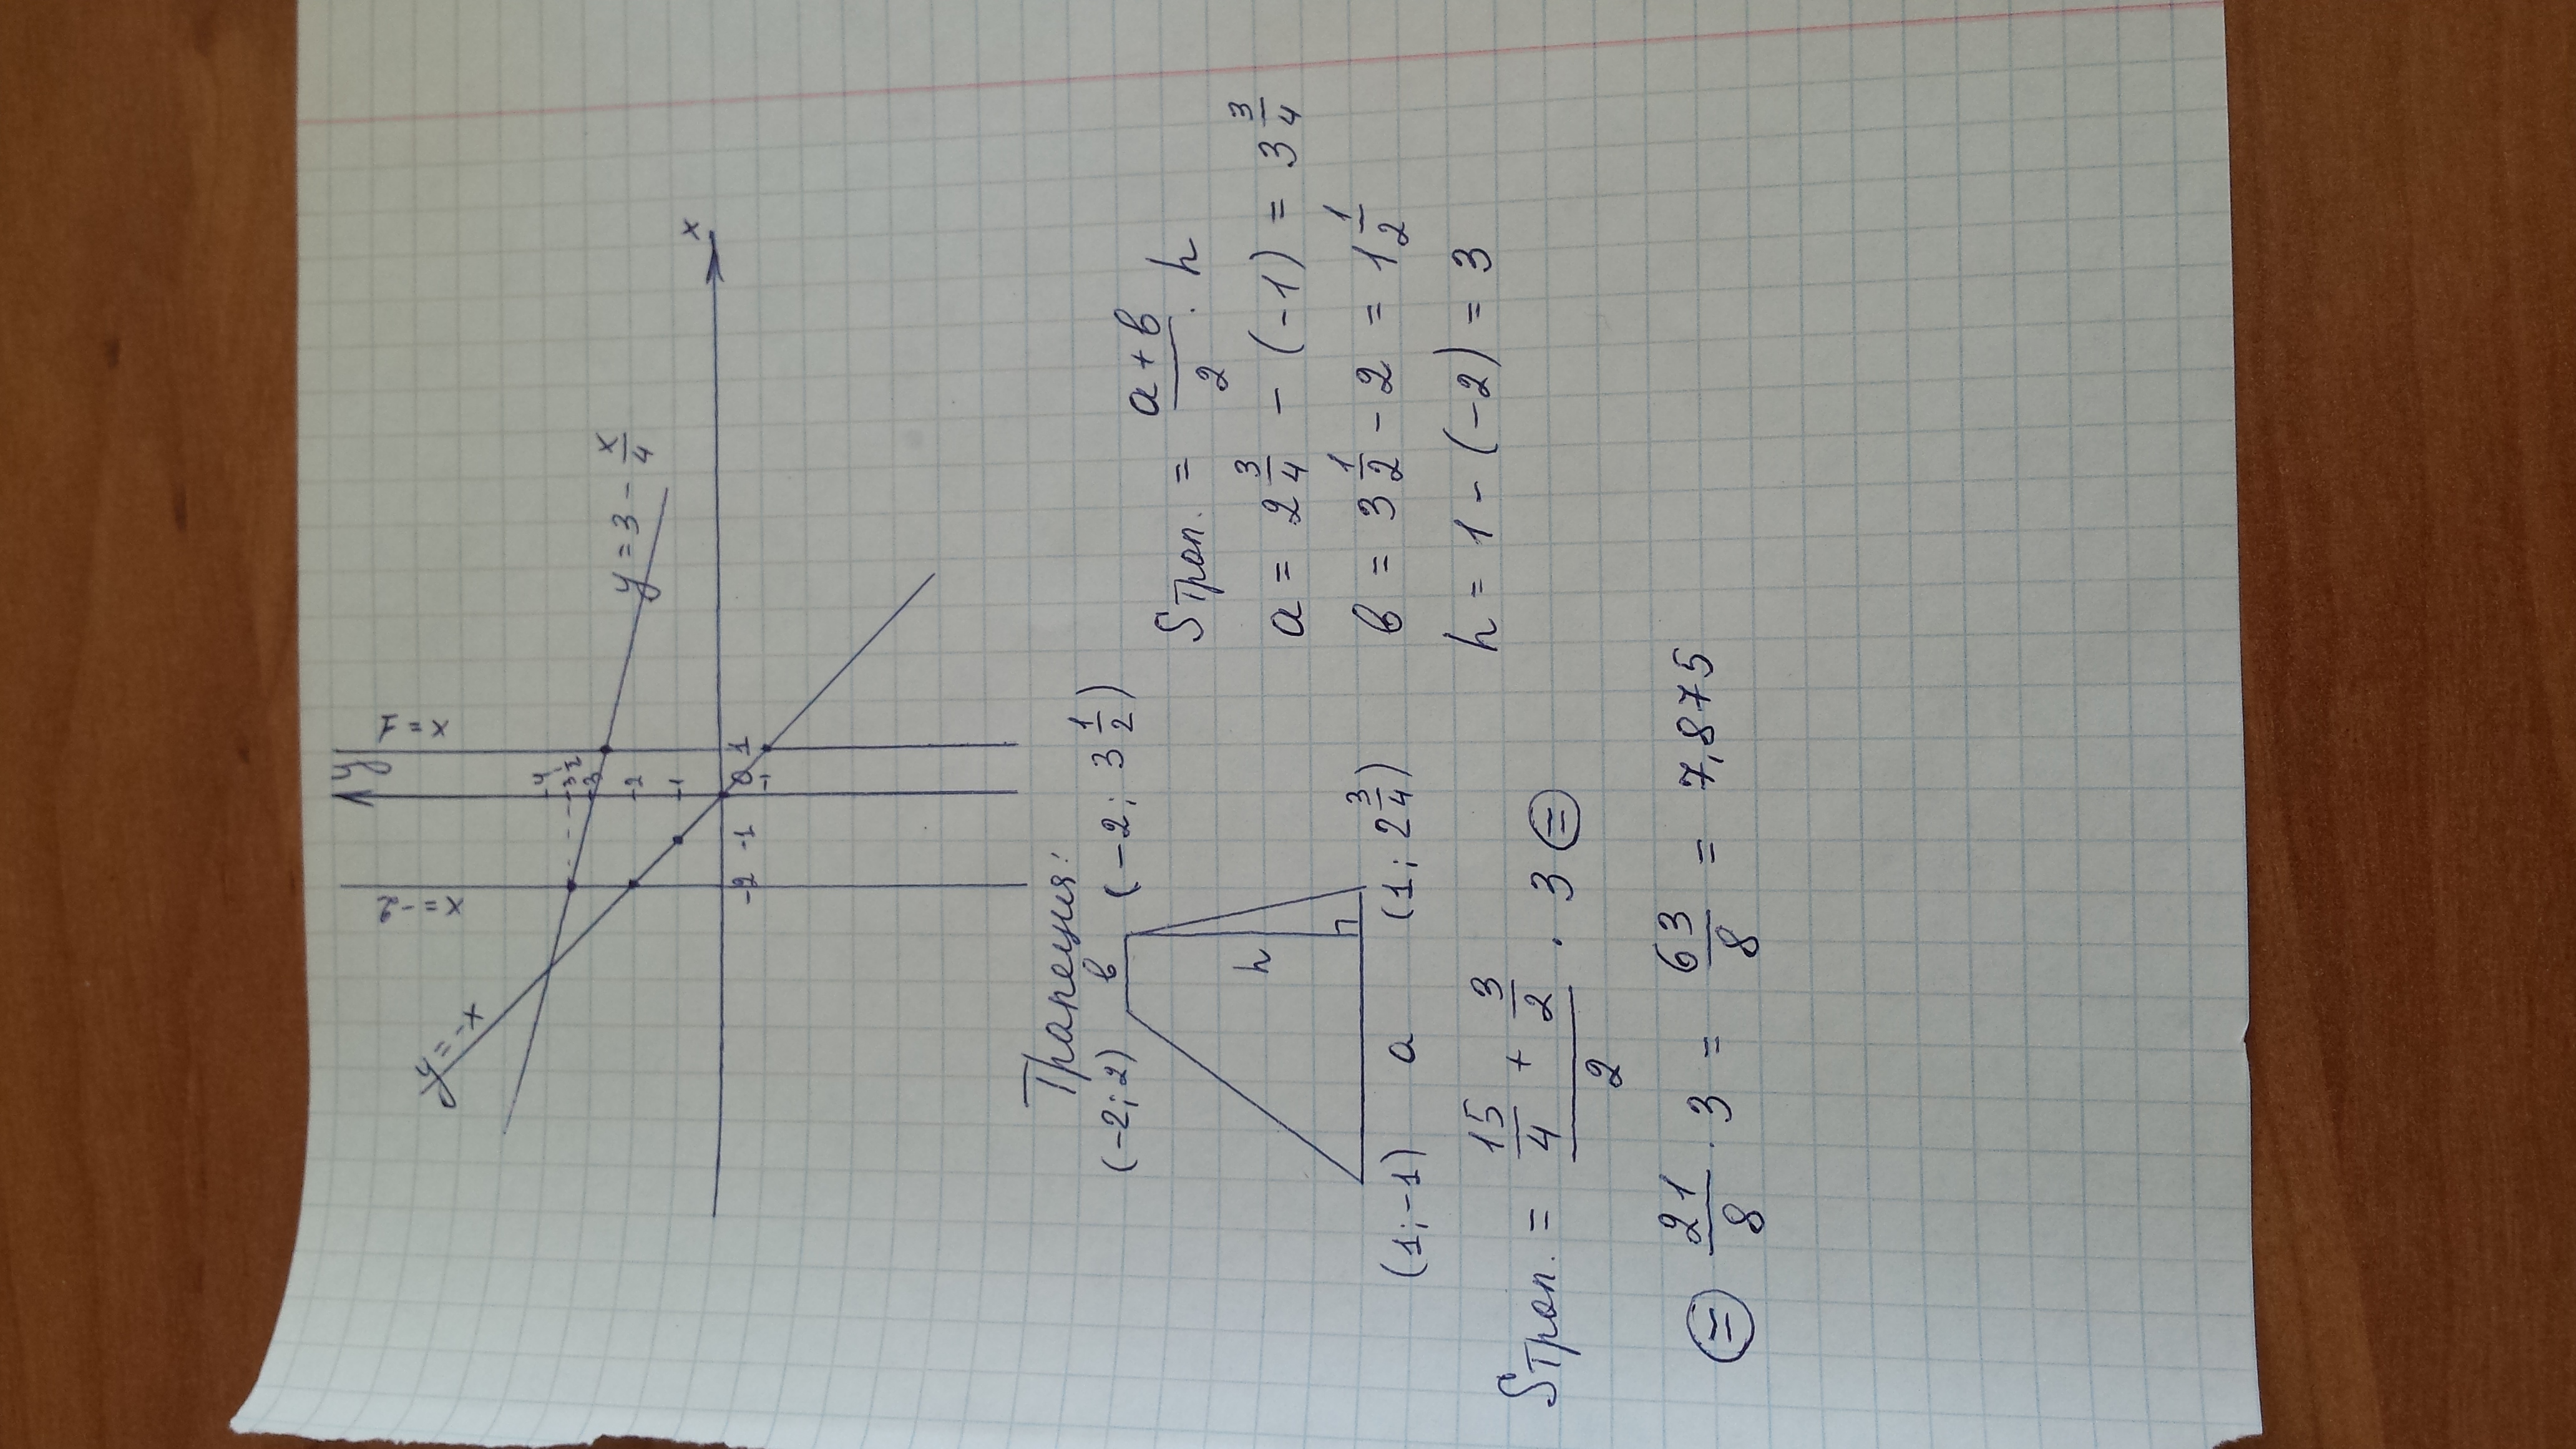 y
x = -2
x = 1
y = -x
4
3 1/2
3
2
1
y = 3 - x/4
x
-2 -1 0 1
-1
Трапеция:
(-2; 2) в (-2; 3 1/2)
h
(1; -1) a (1; 2 3/4)
Sтрап. = (a + в)/2 · h
a = 2 3/4 - (-1) = 3 3/4
в = 3 1/2 - 2 = 1 1/2
h = 1 - (-2) = 3
Sтрап. = (15/4 + 3/2)/2 · 3 =
= 21/8 · 3 = 63/8 = 7,875